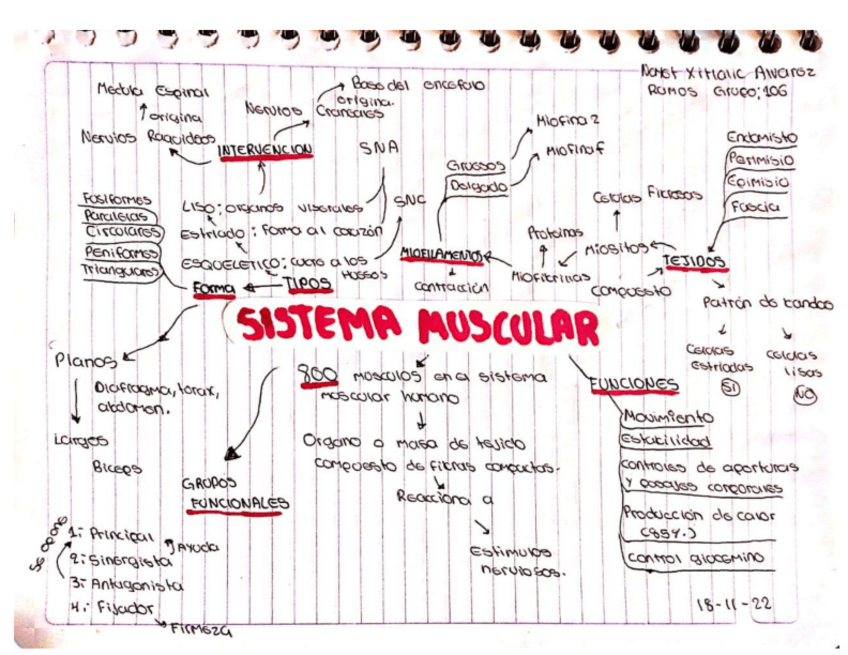 Ximalic Alvarez
Ramos Grupo; 106
Medula Espinal
origina
Nervios Raquideos
INTERVENCION
Nervios
Craneales
origina.
Base del encefalo
SNA
SNC
Liso; organos viserales
Estriado: Forma al corazón
ESQUELETICO; cubre a los
huesos
TIPOS
Forma
Fusiformes
Paralelas
Circolares
Peniformes
Triangulares
Gruesos
Delgado
Miofina 2
Miofinof
MIOFILAMENTOS
contracción
Proteinas
Miofibrinas
Celulas Fibrosas
Miositos
compuesto
TEJIDOS
Endomisto
Perimisio
Epimisio
Fascia
Patrón de bandas
Celulas
Estriadas
Si
celulas
lisas
No
SISTEMA MUSCULAR
Planos
Diafragma, torax,
abdomen.
Largos
Biceps
GRUPOS
FUNCIONALES
1: Principal
Ayuda
2: Sinergista
3: Antagonista
4: Fijador
Firmeza
Se opone
800 musculos en el sistema
muscular humano
Organo o masa de tejido
compuesto de fibras compactas.
Reacciona a
Estimulos
nerviosos.
FUNCIONES
Movimiento
Estabilidad
controles de aperturas
y pasajes corporales
Producción de calor
(85%.)
control glucemino
18-11-22